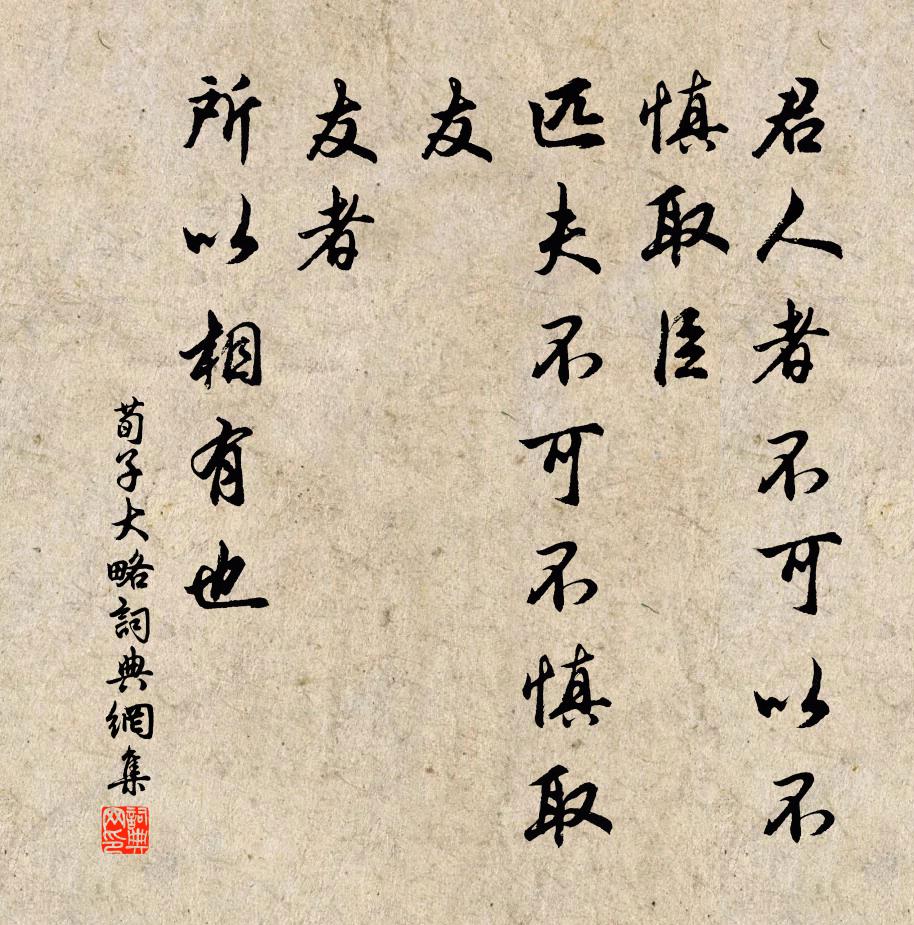 君人者不可以不
慎取臣
匹夫不可不慎取
友
友者
所以相有也
荀子大略詞典網集
詞典
网印